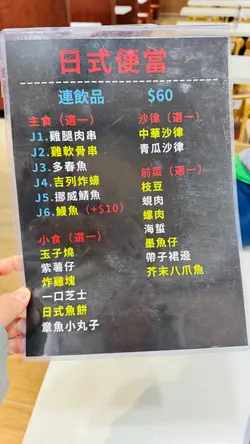 日式便當
連飲品 $60
主食（選一）
J1.雞腿肉串
J2.雞軟骨串
J3.多春魚
J4.吉列炸蠔
J5.挪威鯖魚
J6.鰻魚（+$10）
小食（選一）
玉子燒
紫薯仔
炸雞塊
一口芝士
日式魚餅
章魚小丸子
沙律（選一）
中華沙律
青瓜沙律
前菜（選一）
枝豆
蜆肉
螺肉
海蜇
墨魚仔
帶子裙邊
芥末八爪魚